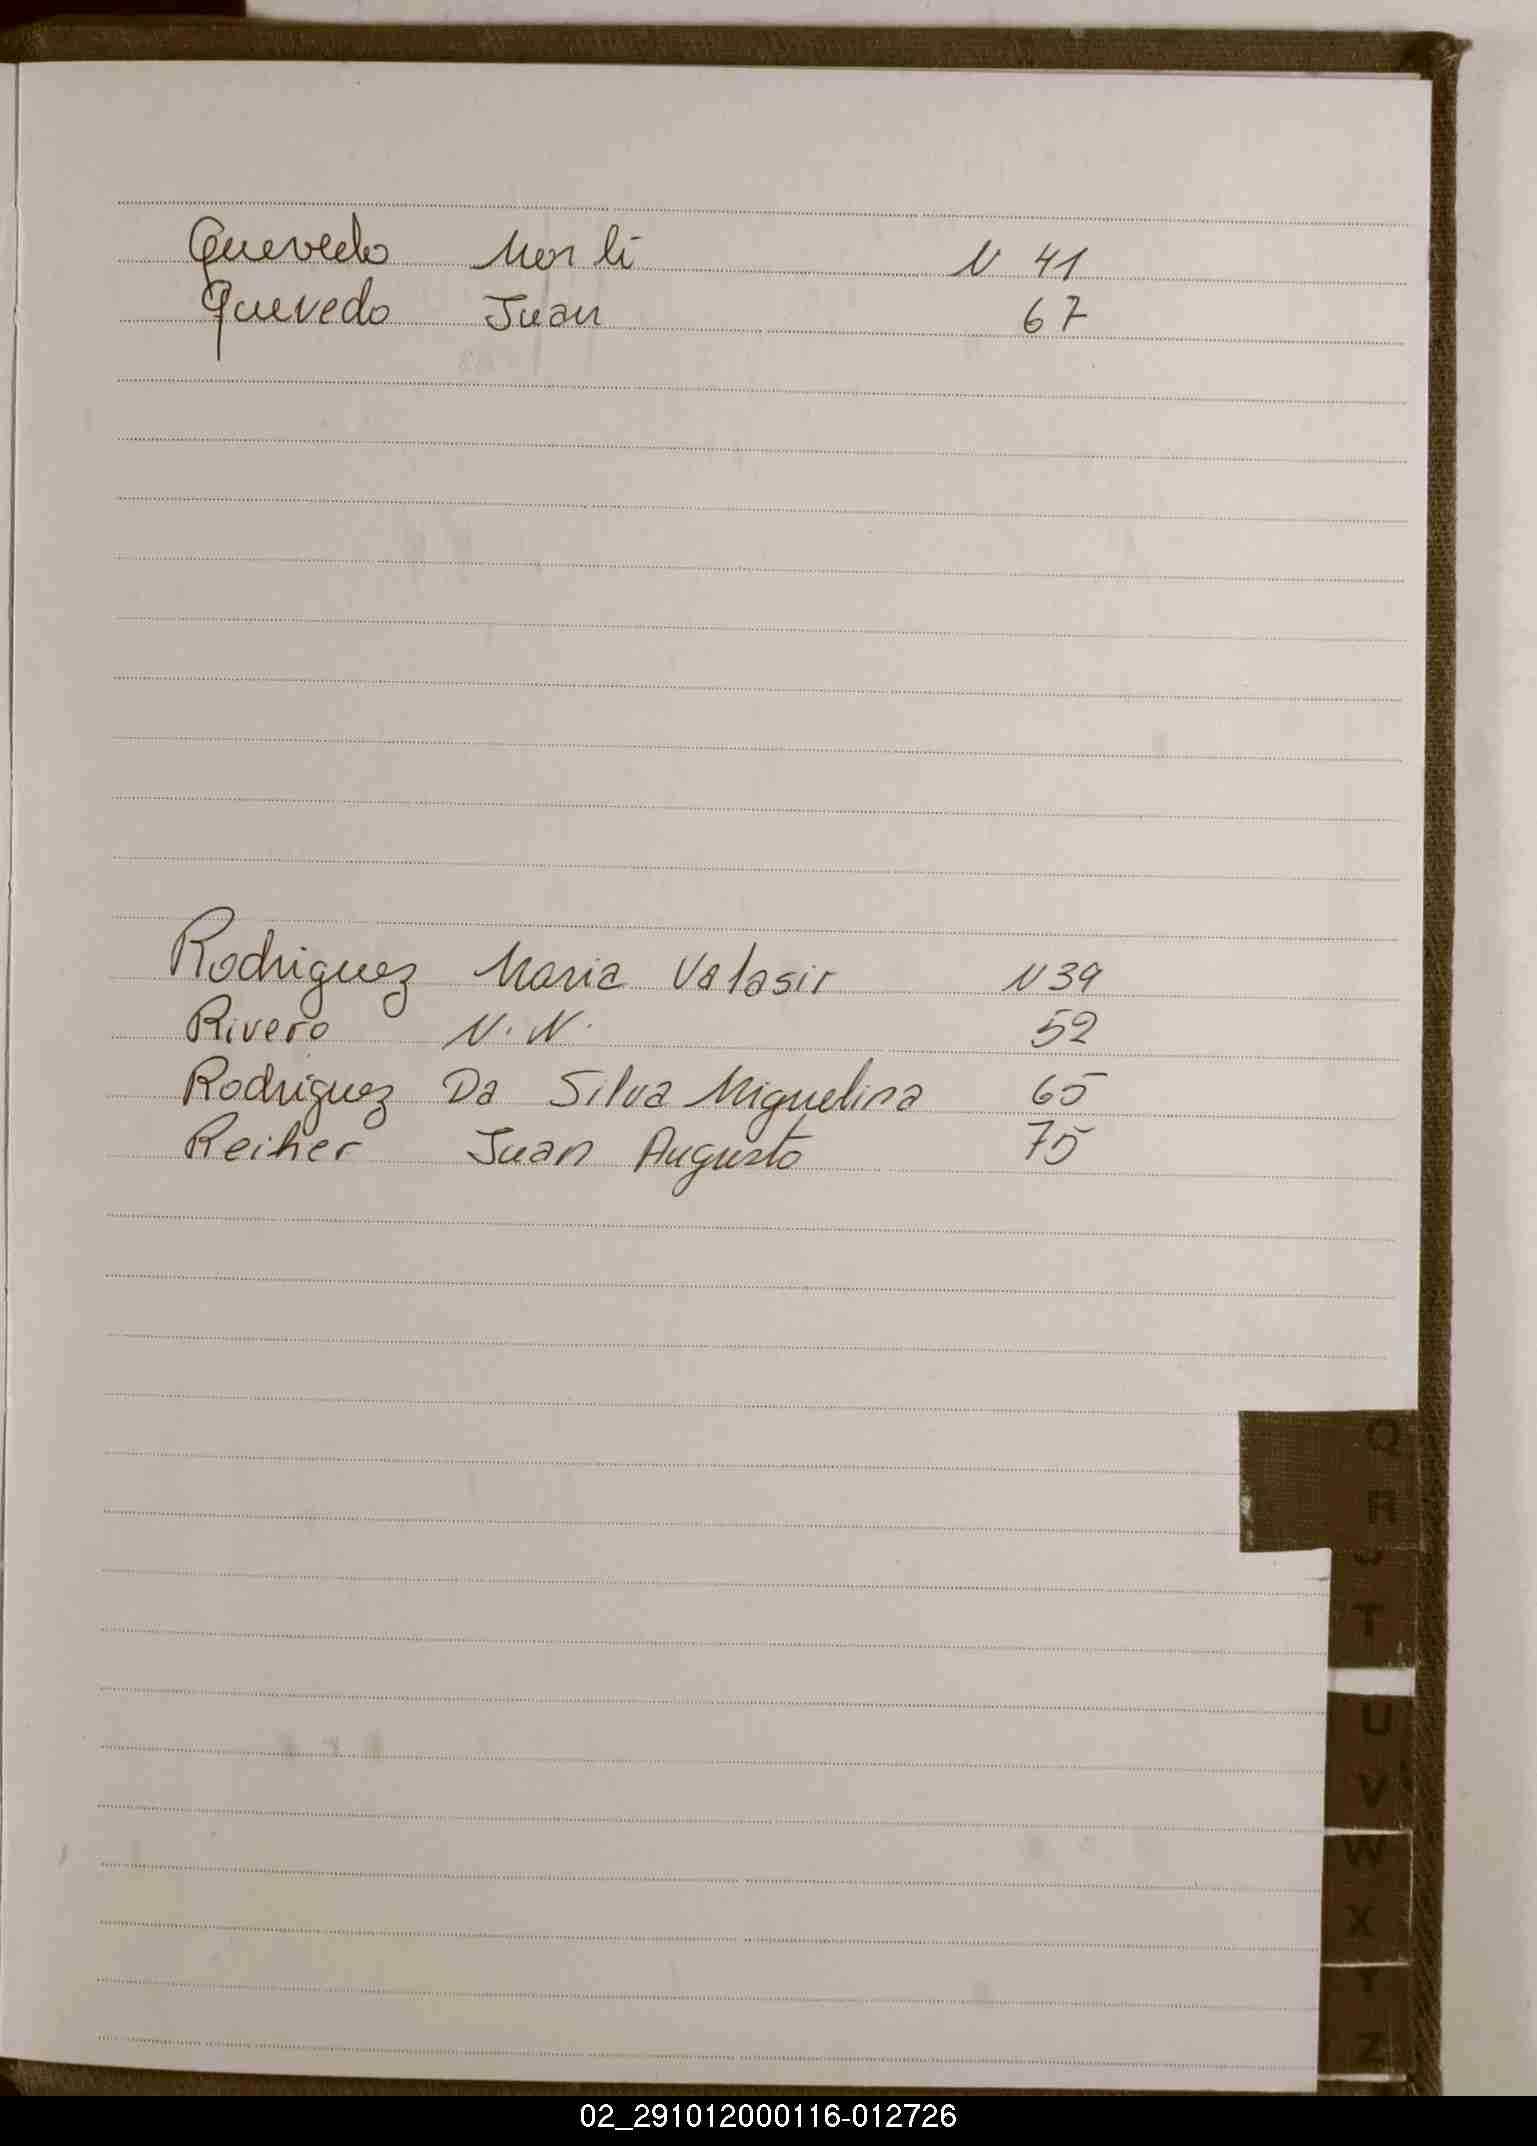 Quevedo Marli N 41
Quevedo Juan 67
Rodriguez Maria Valasir N 39
Rivero N. N. 52
Rodriguez Da Silva Miguelina 65
Reiher Juan Augusto 75
Q
R
T
U
V
W
X
Z
02_291012000116-012726